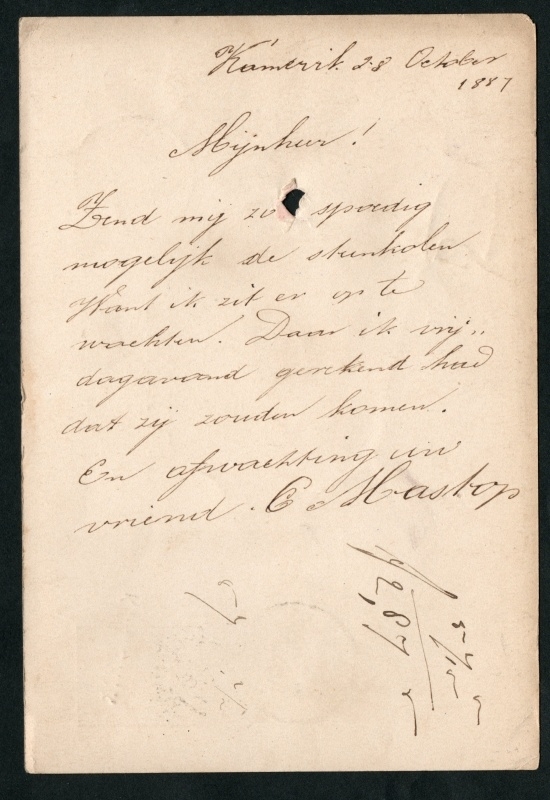 Kamerik 28 October
1887
Mijnheer!
Zend mij zo spoedig
mogelijk de steenkolen
Want ik zit er op te
wachten. Daar ik vrij„
dagavond gerekend had
dat zij zouden komen.
En afwachting uw
vriend. C Mastop